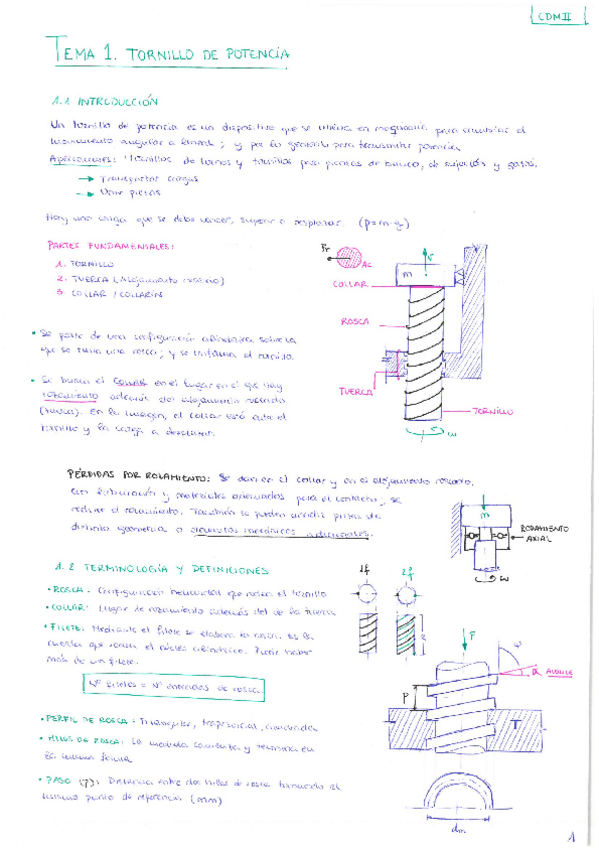 CDM II
TEMA 1. TORNILLO DE POTENCIA
1.1 INTRODUCCIÓN
Un tornillo de potencia es un dispositivo que se utiliza en maquinaria para cambiar el
movimiento angular a lineal; y por lo general para transmitir potencia.
Aplicaciones: Tornillos de tornos y tornillos para prensas de banco, de sujeción y gatos.
→ Transportar cargas
→ Unir piezas
Hay una carga que se debe vencer, superar o desplazar. (p=m·g)
PARTES FUNDAMENTALES:
1. TORNILLO
2. TUERCA (Alojamiento roscado)
3. COLLAR / COLLARÍN
Fr
Ac
V
m
COLLAR
ROSCA
TUERCA
TORNILLO
ω
• Se parte de una configuración cilíndrica sobre la
que se talla una rosca; y se
• Se llama el collar en el lugar en el que hay
rozamiento además del alojamiento roscado
(tuerca). En la imagen, el collar está entre el
tornillo y la carga a desplazar.
PÉRDIDAS POR ROZAMIENTO: Se dan en el collar y en el alojamiento roscado.
Con lubricación y materiales adecuados para el contacto; se
reduce el rozamiento. También se pueden añadir piezas de
distinta geometría o elementos mecánicos adicionales.
m
RODAMIENTO
AXIAL
ω
1.2 TERMINOLOGÍA Y DEFINICIONES
• ROSCA: Configuración helicoidal que rodea el tornillo
• COLLAR: Lugar de rozamiento además del de la tuerca
• FILETE: Mediante el filete se elabora la rosca. Es la
que rodea el núcleo cilíndrico. Puede haber
más de un filete.
Nº filetes = Nº entradas de rosca
1f
2f
F
P
α
AVANCE
T
dm
• PERFIL DE ROSCA: Triangular, trapezoidal, cuadrada
• HILOS DE ROSCA: La
• PASO (P): Distancia entre dos hilos de rosca tomando el
mismo punto de referencia (mm)
1